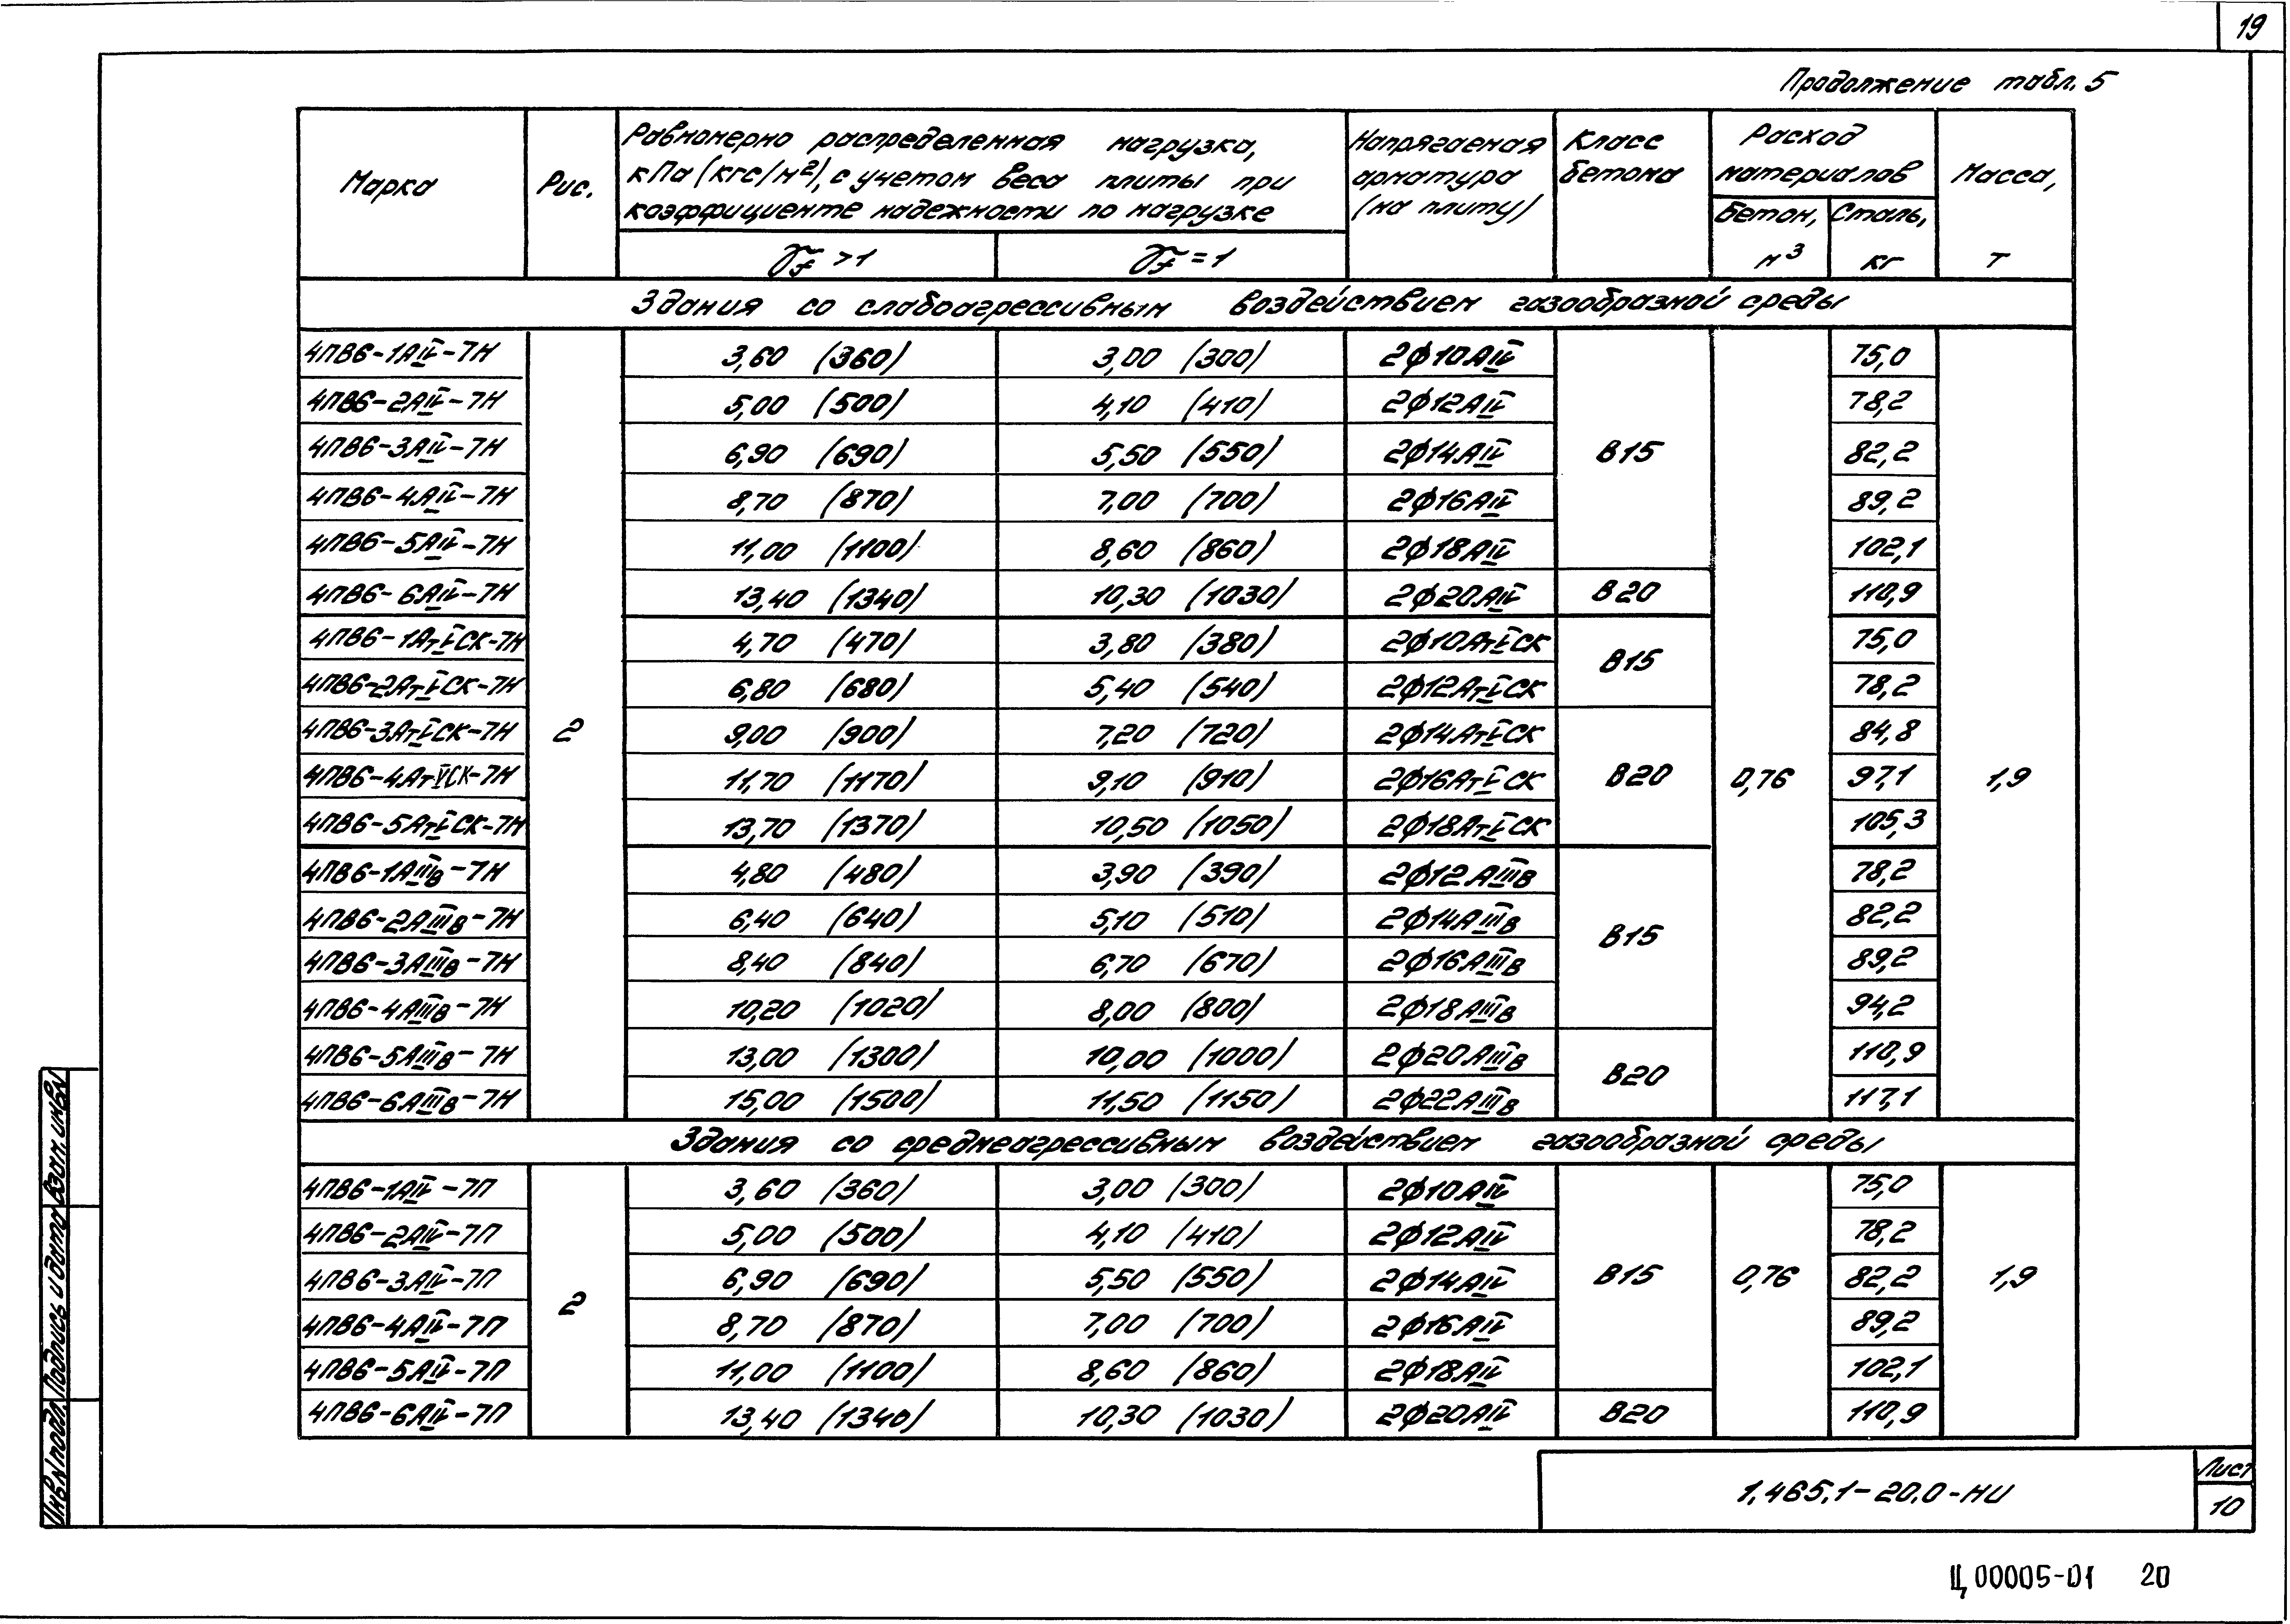 19
Продолжение табл. 5
Марка
Рис.
Равномерно распределенная нагрузка,
кПа (кгс/м²), с учетом веса плиты при
коэффициенте надежности по нагрузке
γf >1
γf =1
Напрягаемая
арматура
(на плиту)
Класс
бетона
Расход
материалов
Бетон,
м³
Сталь,
кг
Масса,
т
Здания со слабоагрессивным воздействием газообразной среды
4ПВ6-1АIV-7Н 3,60 (360) 3,00 (300) 2ф10АIV 75,0
4ПВ6-2АIV-7Н 5,00 (500) 4,10 (410) 2ф12АIV 78,2
4ПВ6-3АIV-7Н 6,90 (690) 5,50 (550) 2ф14АIV В15 82,2
4ПВ6-4АIV-7Н 8,70 (870) 7,00 (700) 2ф16АIV 89,2
4ПВ6-5АIV-7Н 11,00 (1100) 8,60 (860) 2ф18АIV 102,1
4ПВ6-6АIV-7Н 13,40 (1340) 10,30 (1030) 2ф20АIV В20 110,9
4ПВ6-1АтVСК-7Н 4,70 (470) 3,80 (380) 2ф10АтVСК В15 75,0
4ПВ6-2АтVСК-7Н 6,80 (680) 5,40 (540) 2ф12АтVСК 78,2
4ПВ6-3АтVСК-7Н 2 9,00 (900) 7,20 (720) 2ф14АтVСК 84,8
4ПВ6-4АтVСК-7Н 11,70 (1170) 9,10 (910) 2ф16АтVСК В20 0,76 97,1 1,9
4ПВ6-5АтVСК-7Н 13,70 (1370) 10,50 (1050) 2ф18АтVСК 105,3
4ПВ6-1АIIIв-7Н 4,80 (480) 3,90 (390) 2ф12АIIIв 78,2
4ПВ6-2АIIIв-7Н 6,40 (640) 5,10 (510) 2ф14АIIIв В15 82,2
4ПВ6-3АIIIв-7Н 8,40 (840) 6,70 (670) 2ф16АIIIв 89,2
4ПВ6-4АIIIв-7Н 10,20 (1020) 8,00 (800) 2ф18АIIIв 94,2
4ПВ6-5АIIIв-7Н 13,00 (1300) 10,00 (1000) 2ф20АIIIв В20 110,9
4ПВ6-6АIIIв-7Н 15,00 (1500) 11,50 (1150) 2ф22АIIIв 117,1
Здания со среднеагрессивным воздействием газообразной среды
4ПВ6-1АIV-7П 3,60 (360) 3,00 (300) 2ф10АIV 75,0
4ПВ6-2АIV-7П 5,00 (500) 4,10 (410) 2ф12АIV 78,2
4ПВ6-3АIV-7П 2 6,90 (690) 5,50 (550) 2ф14АIV В15 0,76 82,2 1,9
4ПВ6-4АIV-7П 8,70 (870) 7,00 (700) 2ф16АIV 89,2
4ПВ6-5АIV-7П 11,00 (1100) 8,60 (860) 2ф18АIV 102,1
4ПВ6-6АIV-7П 13,40 (1340) 10,30 (1030) 2ф20АIV В20 110,9
Инв.N подл. Подпись и дата Взам. инв.N
1.465.1-20.0-НИ
Лист
10
Ц00005-01 20